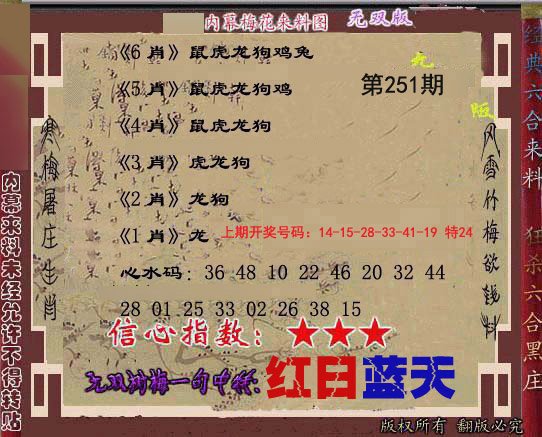 内幕梅花来料图 无双版
《6 肖》鼠虎龙狗鸡兔
《5 肖》鼠虎龙狗鸡
第251期
《4 肖》鼠虎龙狗
《3 肖》虎龙狗
《2 肖》龙狗
《1 肖》龙
上期开奖号码：14-15-28-33-41-19 特24
心水码：36 48 10 22 46 20 32 44
28 01 25 33 02 26 38 15
信心指数：★★★
红日蓝天
版权所有 翻版必究
寒梅屠庄生肖
风雪竹梅欲钱料
内幕来料未经允许不得转贴
经典六合来料
狂杀六合黑庄